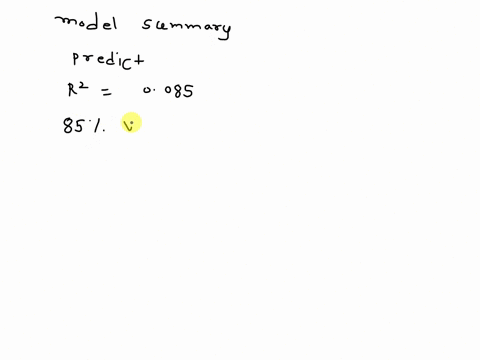 model summary
predict
R² = 0.085
85%.